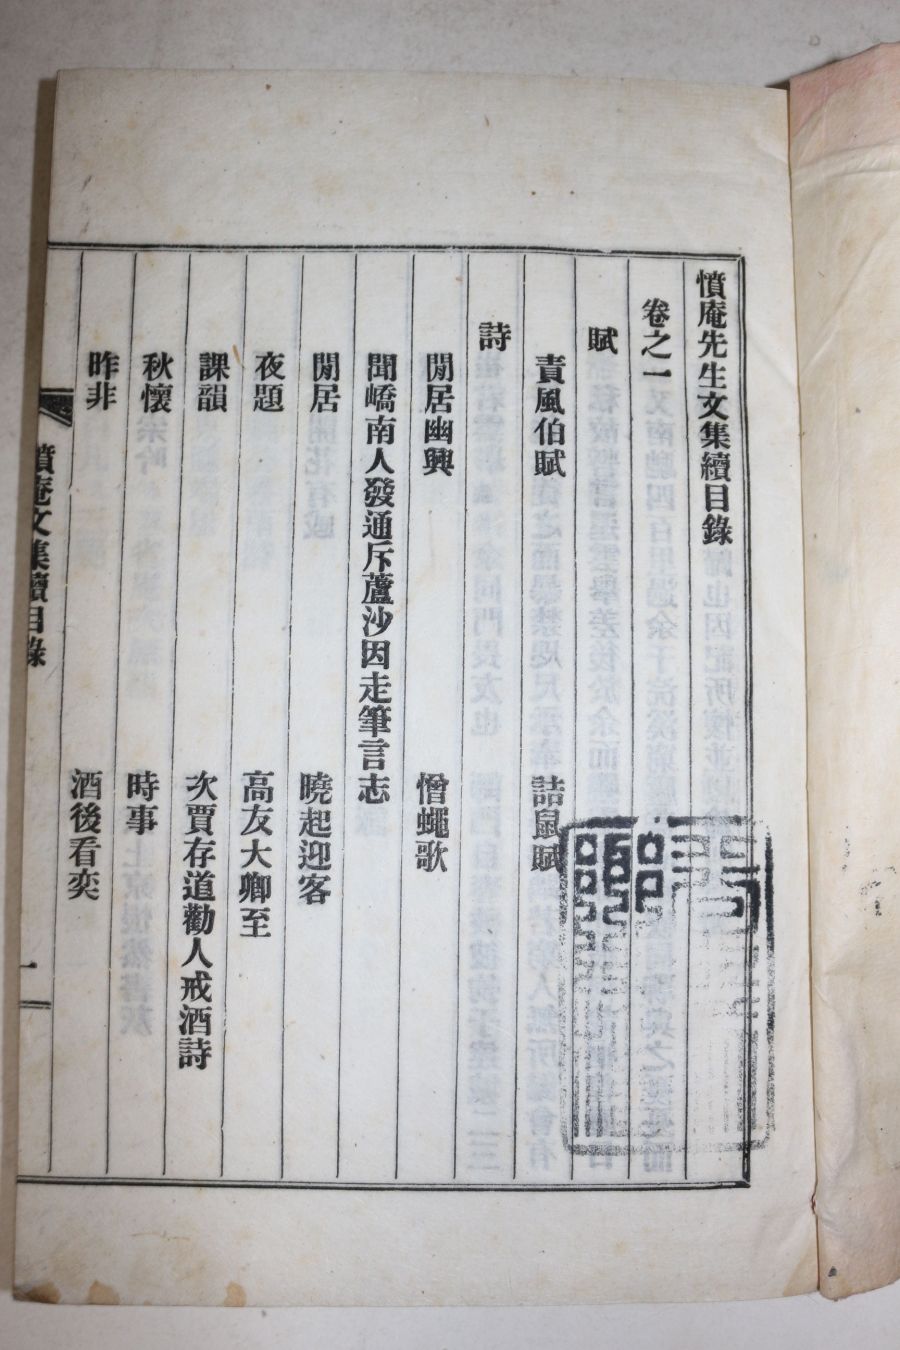 憤庵先生文集續目錄
卷之一
賦
責風伯賦 詰鼠賦
詩
閒居幽興 憎蠅歌
聞嶠南人發通斥蘆沙因走筆言志
閒居 曉起迎客
夜題 高友大卿至
課韻 次賈存道勸人戒酒詩
秋懷 時事
昨非 酒後看奕
憤庵文集續目錄 一